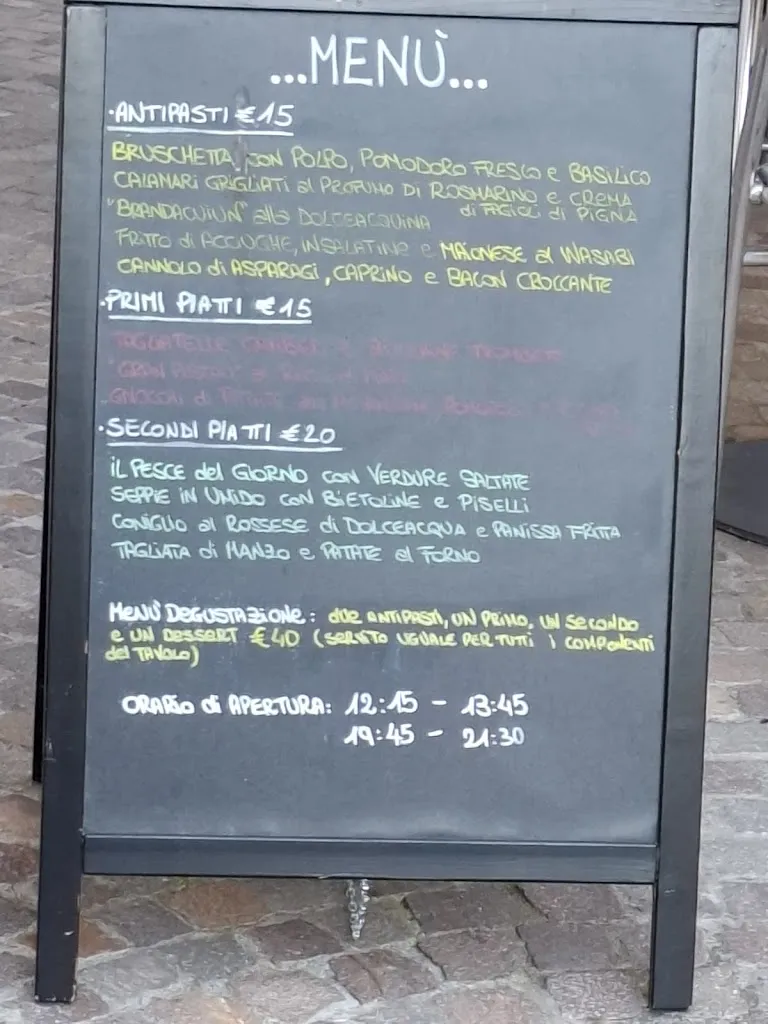 ...MENÙ...
·ANTIPASTI €15
BRUSCHETTA CON POLPO, POMODORO FRESCO e BASILICO
CALAMARI GRIGLIATI al PROFUMO DI ROSMARINO e CREMA
di FAGIOLI di PIGNA
"BRANDACUIUN" alla DOLCEACQUINA
FRITTO di ACCIUGHE, INSALATINE e MAIONESE al WASABI
CANNOLO di ASPARAGI, CAPRINO e BACON CROCCANTE
·PRIMI PIATTI €15
TAGLIATELLE GAMBERI e ZUCCHINE TROMBETTE
GNOCCHI di
·SECONDI PIATTI €20
IL PESCE del GIORNO con VERDURE SALTATE
SEPPIE IN UMIDO con BIETOLINE e PISELLI
CONIGLIO al ROSSESE di DOLCEACQUA e PANISSA FRITTA
TAGLIATA di MANZO e PATATE al FORNO
MENÙ DEGUSTAZIONE: due ANTIPASTI, UN PRIMO, UN SECONDO
e UN DESSERT €40 (SERVITO UGUALE PER TUTTI i COMPONENTI
del TAVOLO)
ORARIO di APERTURA: 12:15 - 13:45
19:45 - 21:30